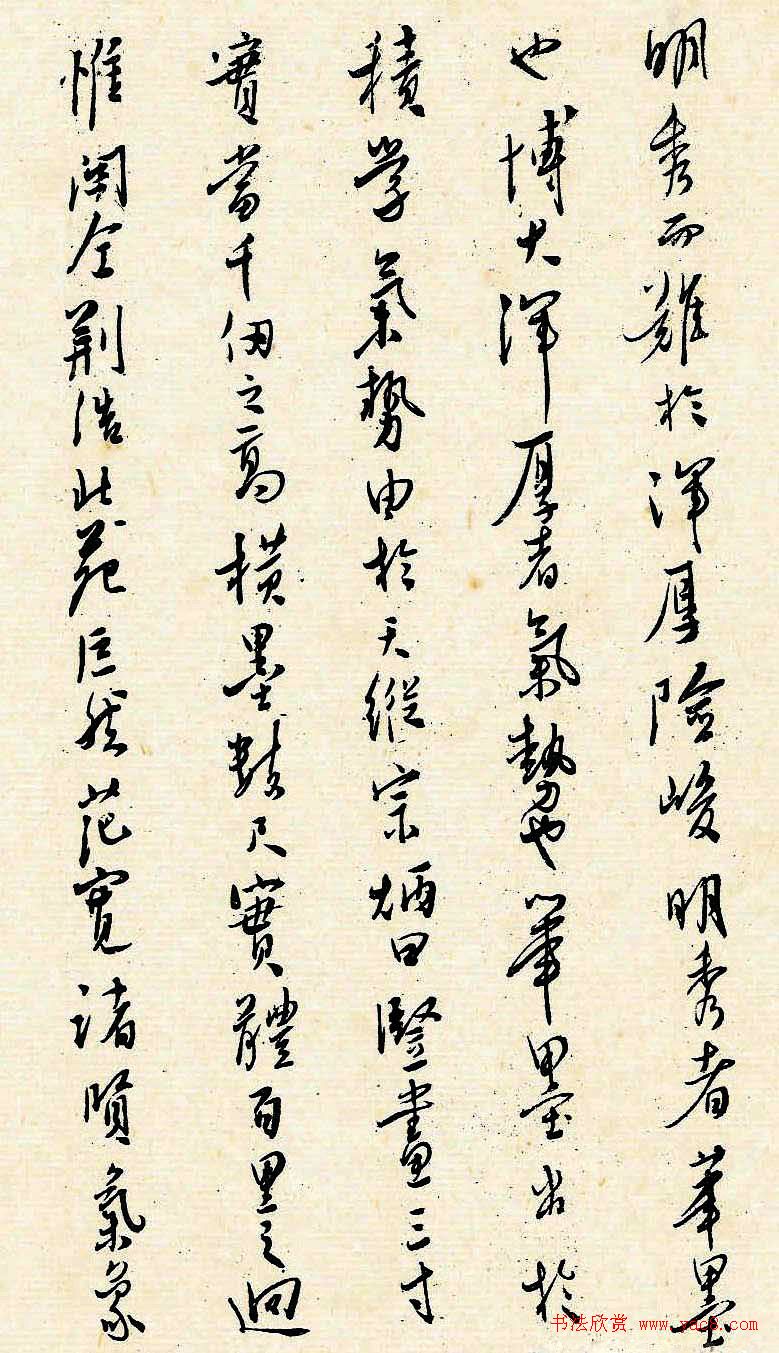 明秀而難於渾厚險峻明秀者筆墨
也博大渾厚者氣勢也筆墨出於
積學氣勢由於天縱宗炳曰豎畫三寸
實當千仞之高橫墨數尺實體百里之迥
惟關仝荊浩北苑巨然范寬諸賢氣象
书法欣赏 www.yac8.com